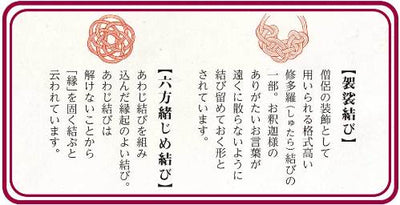 【袈裟結び】
僧侶の装飾として
用いられる格式高い
修多羅(しゅたら)結びの
一部。お釈迦様の
ありがたいお言葉が
遠くに散らないように
結び留めておく形と
されています。
【六方緒じめ結び】
あわじ結びを組み
込んだ縁起のよい結び。
あわじ結びは
解けないことから
「縁」を固く結ぶと
云われています。